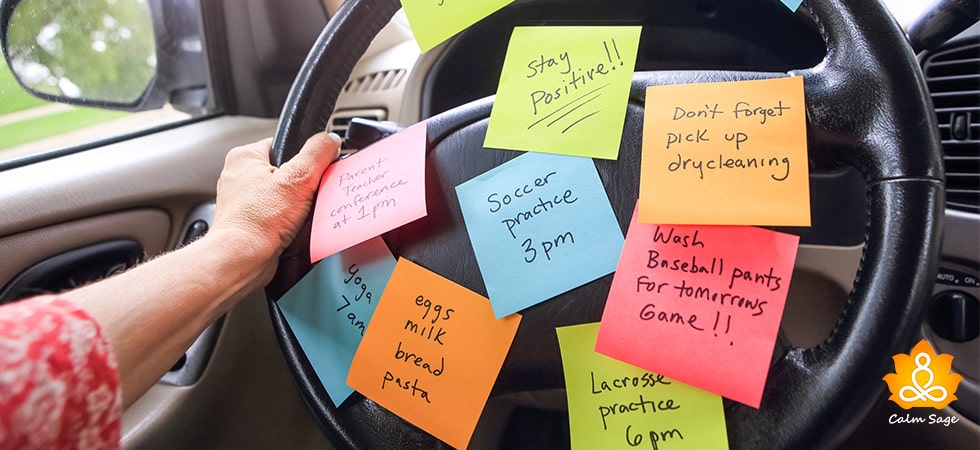 Stay
Positive!!
Don't forget
pick up
drycleaning
Parent
Teacher
conference
at 1pm
Soccer
practice
3pm
Wash
Baseball pants
for tomorrows
Game!!
Yoga
7am
eggs
milk
bread
pasta
Lacrosse
practice
6pm
AUTO
ON
Calm Sage